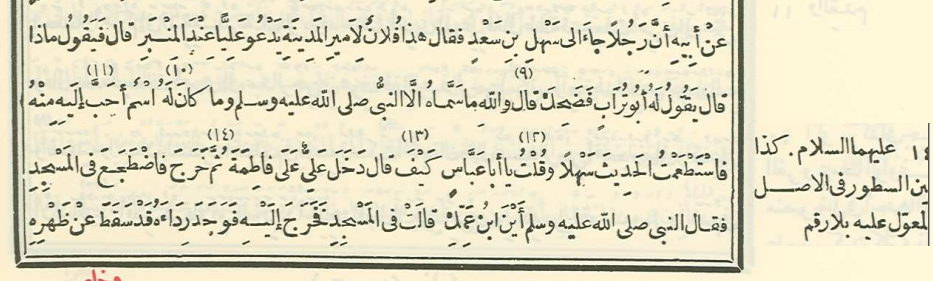 عَنْ أَبِيهِ أَنَّ رَجُلًا جَاءَ إِلَى سَهْلِ بْنِ سَعْدٍ فَقَالَ هذا فُلَانٌ لِأَمِيرِ المَدِينَةِ يَدْعُو عَلِيًّا عِنْدَ المِنْبَرِ قال فَيَقُولُ ماذا
(٩) (١٠) (١١)
قال يَقُولُ لَهُ أَبُو تُرَابٍ فَضَحِكَ قال والله مَا سَمَّاهُ إِلَّا النبيُّ صلى الله عليه وسلم وما كانَ لَهُ اسْمٌ أَحَبَّ إِلَيْهِ مِنْهُ
(١٢) (١٣) (١٤)
فَاسْتَطْعَمْتُ الحَدِيثَ سَهْلًا وقُلْتُ يا أبا عَبَّاسٍ كَيْفَ قال دَخَلَ عَلِيٌّ عَلَى فَاطِمَةَ ثُمَّ خَرَجَ فَاضْطَجَعَ فى المَسْجِدِ
فقال النبى صلى الله عليه وسلم أَيْنَ ابنُ عَمِّكِ قالَتْ فى المَسْجِدِ فَخَرَجَ إِلَيْهِ فَوَجَدَ رِدَاءَهُ قَدْ سَقَطَ عنْ ظَهْرِهِ
١٤ عليهما السلام. كذا
بين السطور فى الاصل
المعوّل عليه بلا رقم